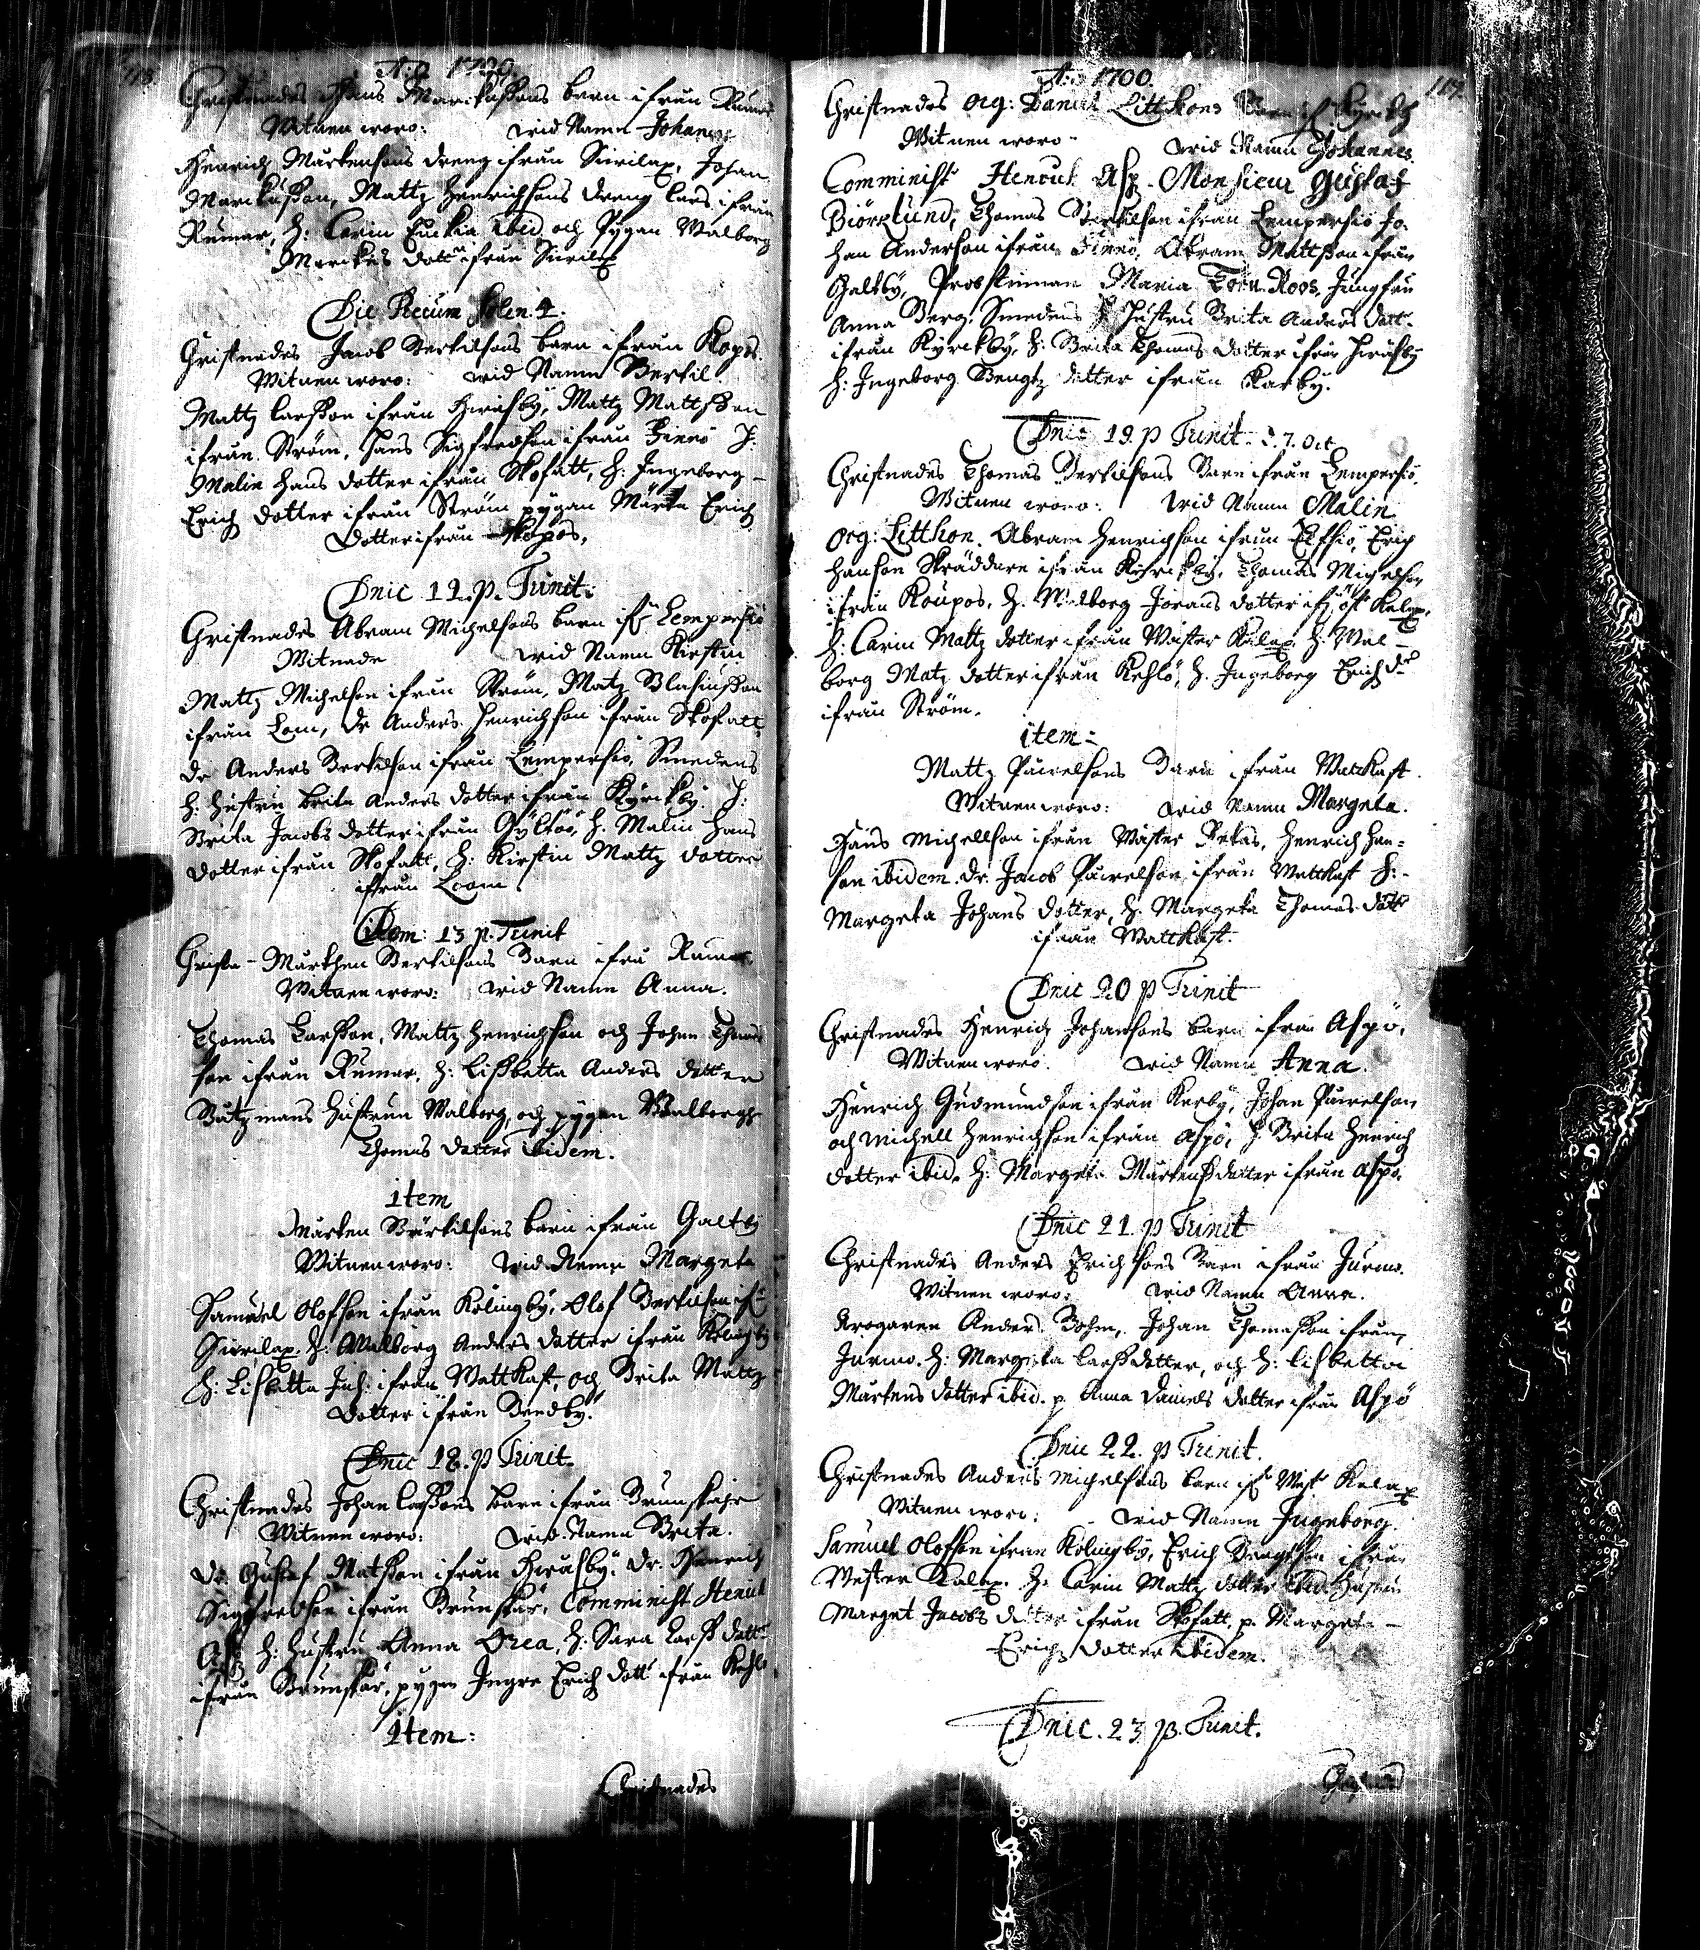 A:o 1700.
Christnades Hans Marcussons barn ifrån Rumar
Witnen woro: wid Namn Johannes
Henrich Mårtensons dreng ifrån Süvilax, Johan
Marcusson, Mattz Henrichsons dreng Lars ifrån
Rumar, H: Carin ibid. och Pygan Walborg
Marckus dotter ifrån Süvilax
Die Precum Solen 4.
Christnades Jacob Bertilsons barn ifrån Kopos.
Witnen woro: wid Namn Bertil.
Mattz Larsson ifrån Hwäsby, Mattz Mattsson
ifrån Ström, Hans Sigfredson ifrån Finnö H:
Malin Hans dotter ifrån Skofatt, H: Ingeborg
Erich dotter ifrån Ström pygan Märta Erich
dotter ifrån Kopos,
Dnic 12. p. Trinit:
Christnades Abram Michelsons barn ifr Lempersiö
Witnade wid Namn Kirstin
Mattz Michelson ifrån Ström, Matz Blasiusson
ifrån Lom, dr Anders Henrichson ifrån Skofatt
dr Anders Bertilson ifrån Lempersiö, Smedens
H: Hustru Brita Anders dotter ifrån Kyrckby. H:
Brita Jacobs dotter ifrån Gyltöö, H. Malin Hans
dotter ifrån Skofatt, H: Kirstin Mattz dotter
ifrån Loom
Dom: 13 p. Trinit
Christn- Mårthen Bertilsons Barn ifrå Rumar.
Witnen woro: wid Namn Anna.
Thomas Larsson, Mattz Henrichson och Johan Thomas
son ifrån Rumar, H: Lissbetta Anders dotter
Båtzmans Hustrun Walborg, och pygan Walborgh
Thomas dotter ibidem.
item
Mårten Bertilsons barn ifrån Galtby
Witnen woro: wid Namn Margeta
Samuel Olofson ifrån Kålingby, Olof Bertilson ifr
Süvilax. H: Walborg Anders dotter ifrån Kålingby
H: Lisbetta Joh: ifrån Wattkast, och Brita Mattz
dotter ifrån Bendby.
Dnic 18. p Trinit.
Christnades Johan Larssons barn ifrån Brunskär
Witnen woro: wid Namn Brita.
Dr. Gustaf Matsson ifrån Hwäsby. Dr. Henrich
Sigfredson ifrån Brunskär, Comminist Henrich
Asp H: Hustru Anna Orea, H: Sara Larss dotter
ifrån Brunskär, pygan Ingre Erich dott ifrån Kehlö
item:
Christnades
A:o 1700 117.
Christnades Org: Daniel Litthons Barn if. Kyrckby
Witnen woro wid Namn Johannes.
Comminist Henrich Asp. Monsieur Gustaf
Biörklund, Thomas Bertilson ifrån Lempersiö Jo-
han Anderson ifrån Finnö, Abram Mattsson ifrån
Galtby, Probstinnan Maria Roos, Jungfru
Anna Berg, Smedens Hustru Brita Anders dott.
ifrån Kyrckby, H: Brita Thomas dotter ifrån Hwäsby
H: Ingeborg Bengtz dotter ifrån Karby.
Dnic 19. p Trinit. 7. Oct
Christnades Thomas Bertilsons Barn ifrån Lempersiö.
Witnen woro: wid Namn Malin
Org: Litthon. Abram Henrichson ifrån Elfsiö, Erich
Hanson Skräddare ifrån Kyrckby, Thomas Michelson
ifrån Koupos, H. Walborg Jorans dotter ifr öst Kelax,
H: Carin Mattz dotter ifrån Wäster Kelax H: Wal-
borg Matz dotter ifrån Kehlö, H. Ingeborg Erich dr
ifrån Ström.
item:
Mattz Påwelsons Barn ifrån Wattkast.
Witnen woro: wid Namn Margeta.
Hans Michellson ifrån Wäster Retas, Henrich Han-
son ibidem. dr. Jacob Påwelson ifrån Wattkast H:
Margeta Johans dotter, H. Margeta Thomas dott
ifrån Wattkast.
Dnic 20 p Trinit
Christnades Henrich Johansons barn ifrån Aspö.
Witnen woro: wid Namn Anna.
Henrich Gudmundson ifrån Kerby, Johan Påwelson
och Michell Henrichson ifrån Aspö, H Brita Henrich
dotter ibid. H: Margeta Mårtens dotter ifrån Aspö.
Dnic 21. p Trinit
Christnades Anders Erichsons Barn ifrån Jurmo.
Witnen woro: wid Namn Anna.
Krogaren Anders Bohm, Johan Thomasson ifrån
Jurmo. H: Margeta Larssdotter, och H: Lisbetta
Mårtens dotter ibid. p. Anna Daniels dotter ifrån Aspö
Dnic 22. p Trinit.
Christnades Anders Michelsons barn ifr Wäst Kelax
Witnen woro: wid Namn Ingeborg.
Samuel Olofson ifrån Kålingby, Erich Bengtson ifrån
Wäster Kelax. H: Carin Mattz dotter ibid. Hustru
Marget Jacobs dotter ifrån Skofatt, p. Margeta
Erich dotter ibidem.
Dnic. 23 p. Trinit.